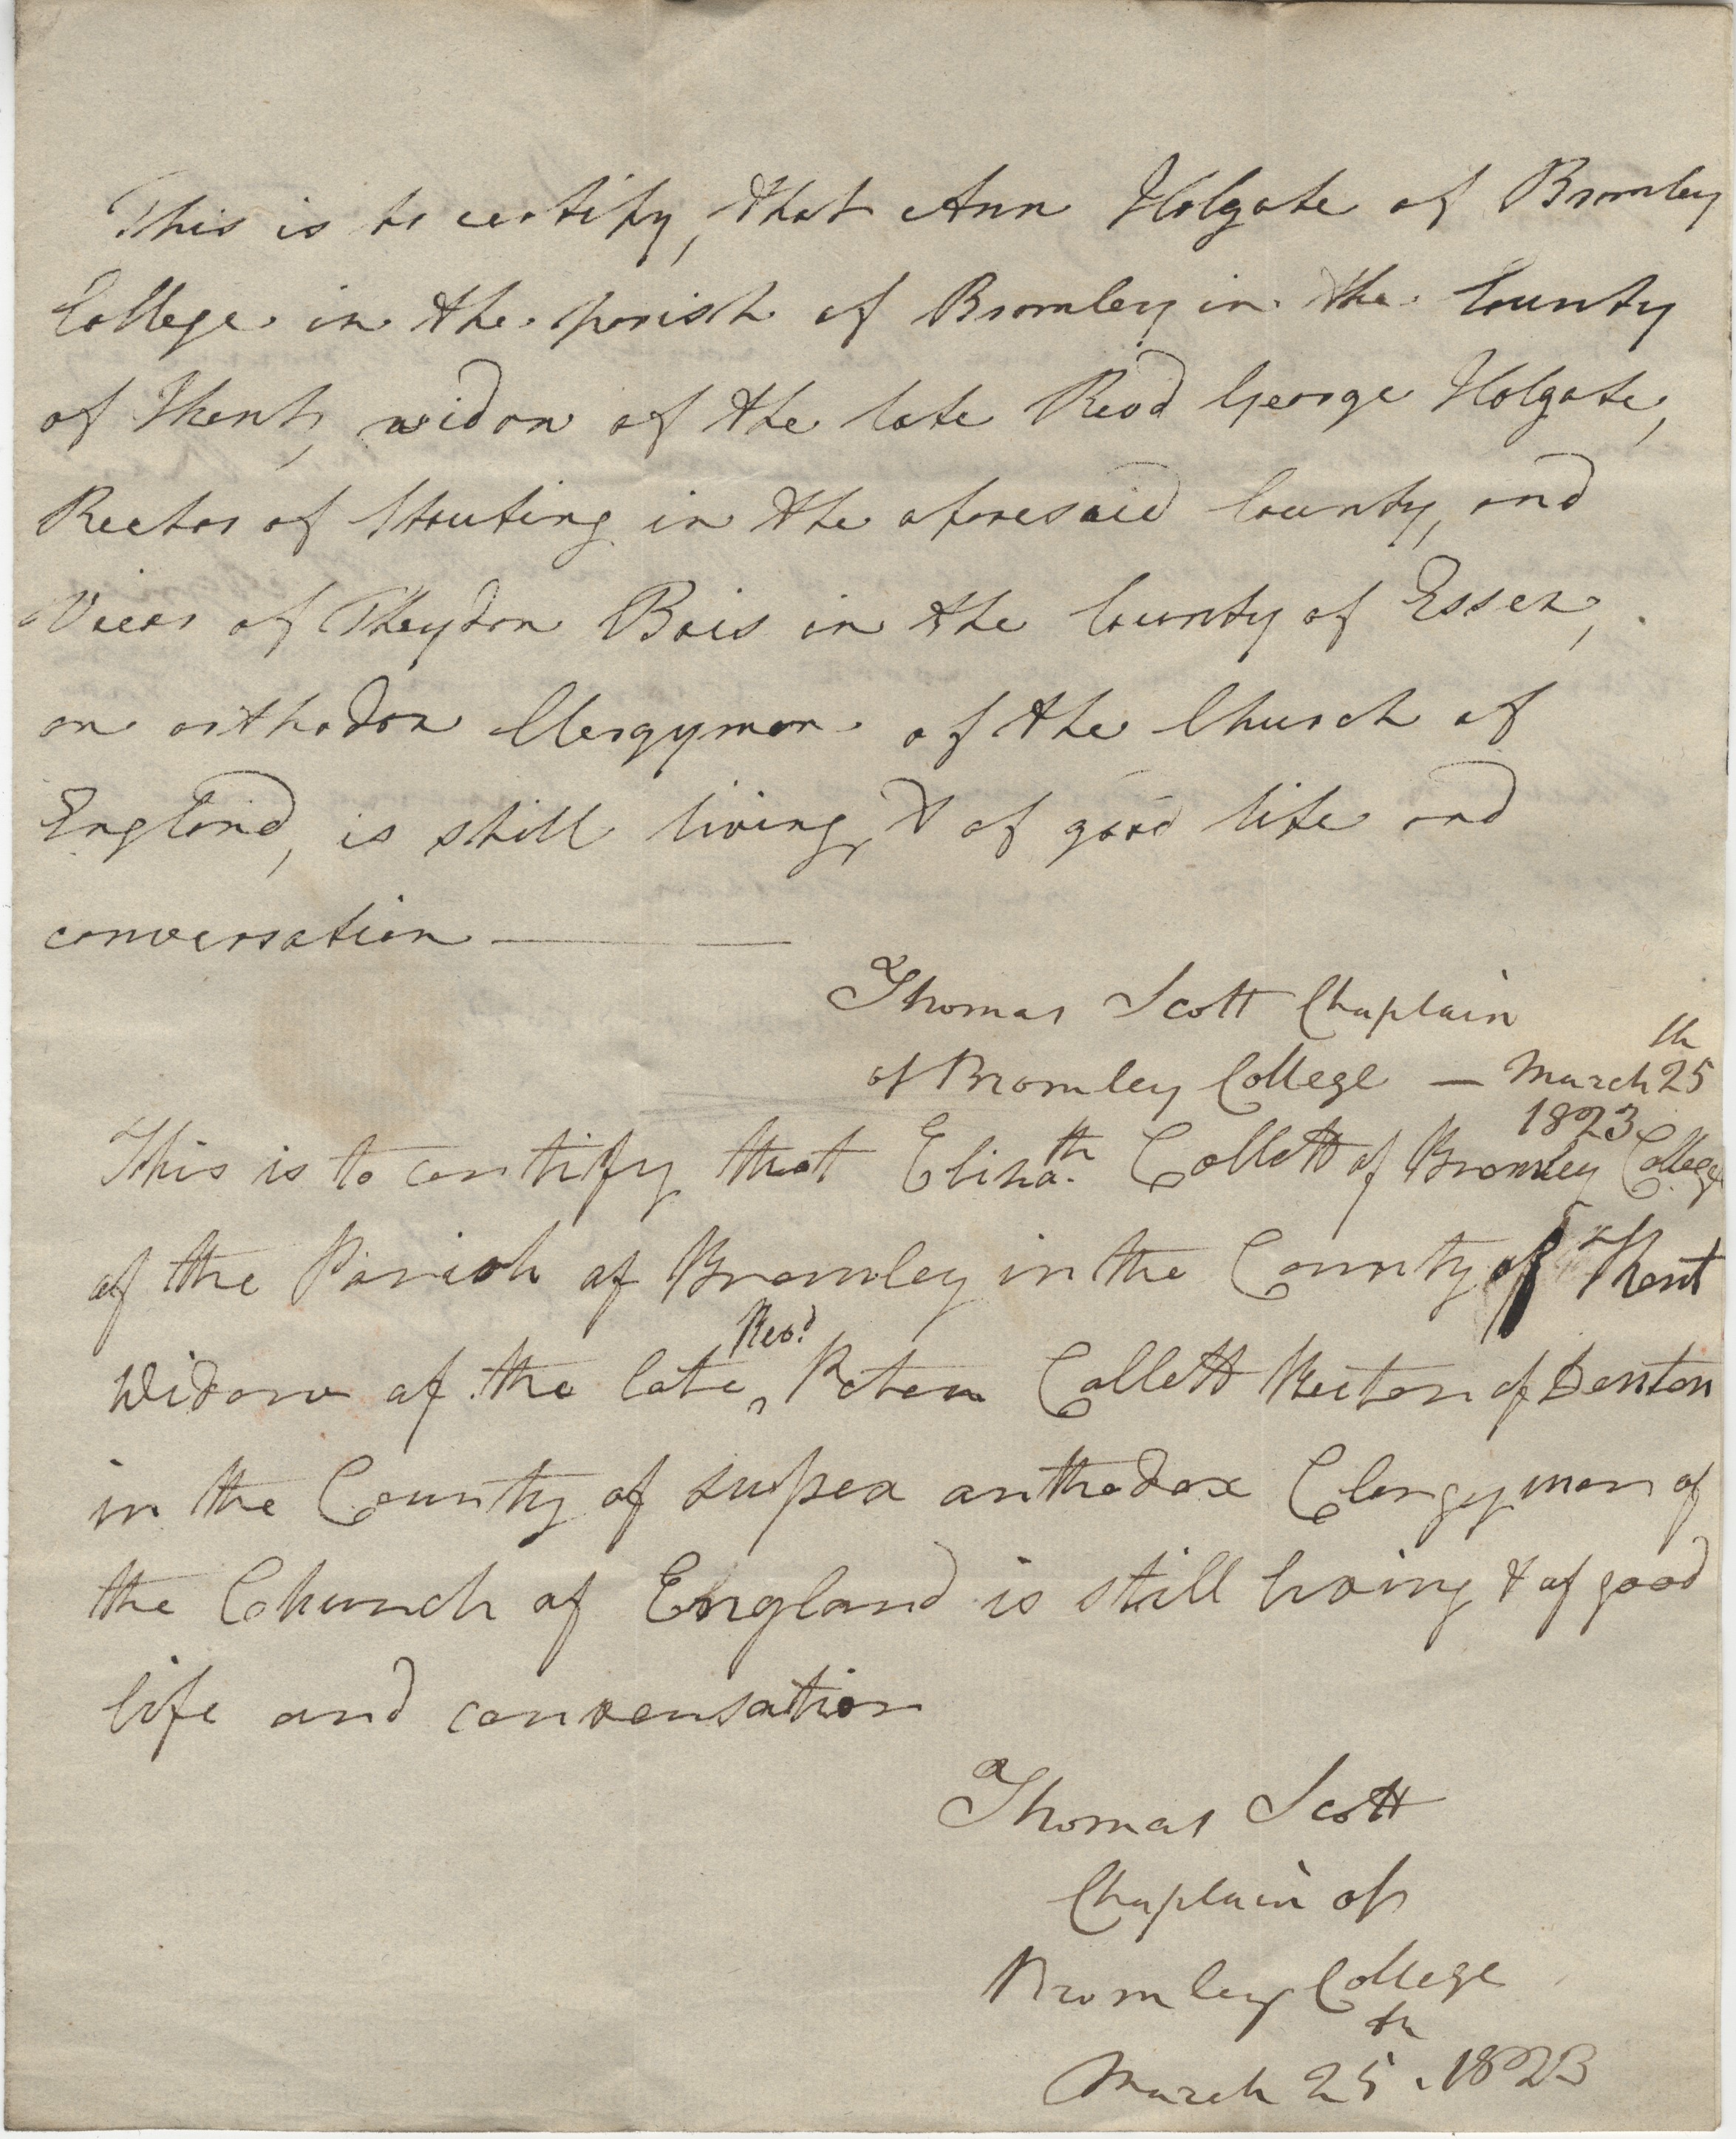 This is to certify, that Ann Holgate of Bromley
College in the parish of Bromley in the County
of Kent, widow of the late Revd George Holgate,
Rector of Stouting in the aforesaid County, and
Vicar of Theydon Bois in the County of Essex,
an orthodox Clergyman of the Church of
England, is still living, & of good life and
conversation
Thomas Scott Chaplain
of Bromley College — March 25th
1823
This is to certify that Elizath. Collett of Bromley College
of the Parish of Bromley in the County of Kent
Widow of the late Revd. Peter Collett Rector of Denton
in the County of Sussex orthodox Clergyman of
the Church of England is still living & of good
life and conversation
Thomas Scott
Chaplain of
Bromley College
March 25th. 1823